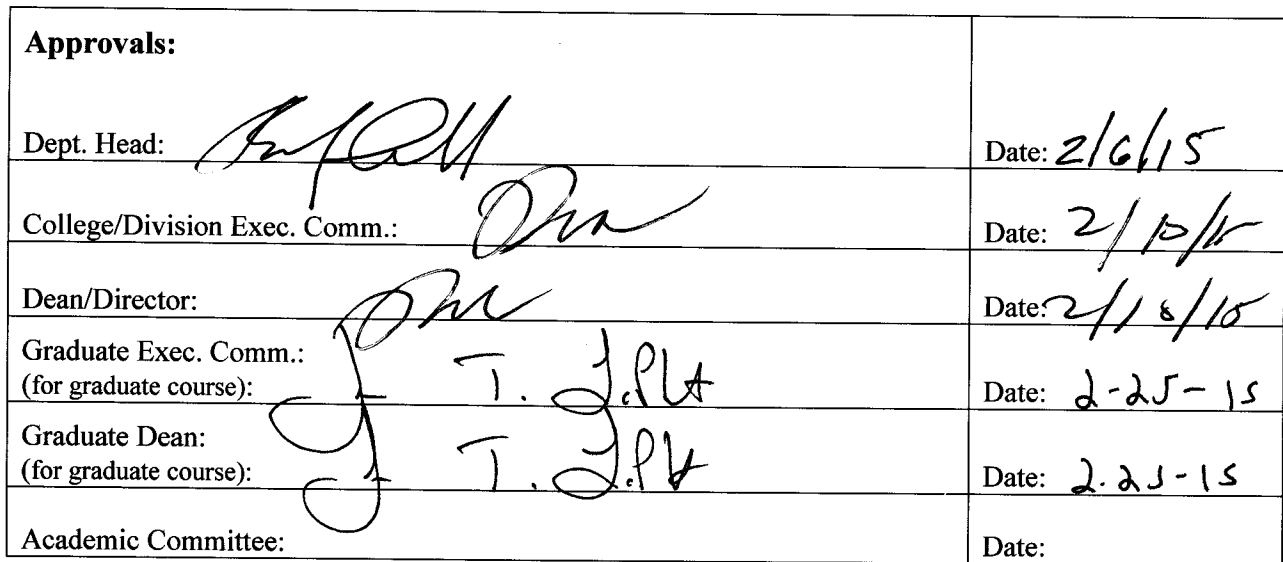 Approvals:
Dept. Head: Date: 2/6/15
College/Division Exec. Comm.: Date: 2/10/15
Dean/Director: Date: 2/18/15
Graduate Exec. Comm.:
(for graduate course): T. Date: 2-25-15
Graduate Dean:
(for graduate course): T. Date: 2.25-15
Academic Committee: Date: